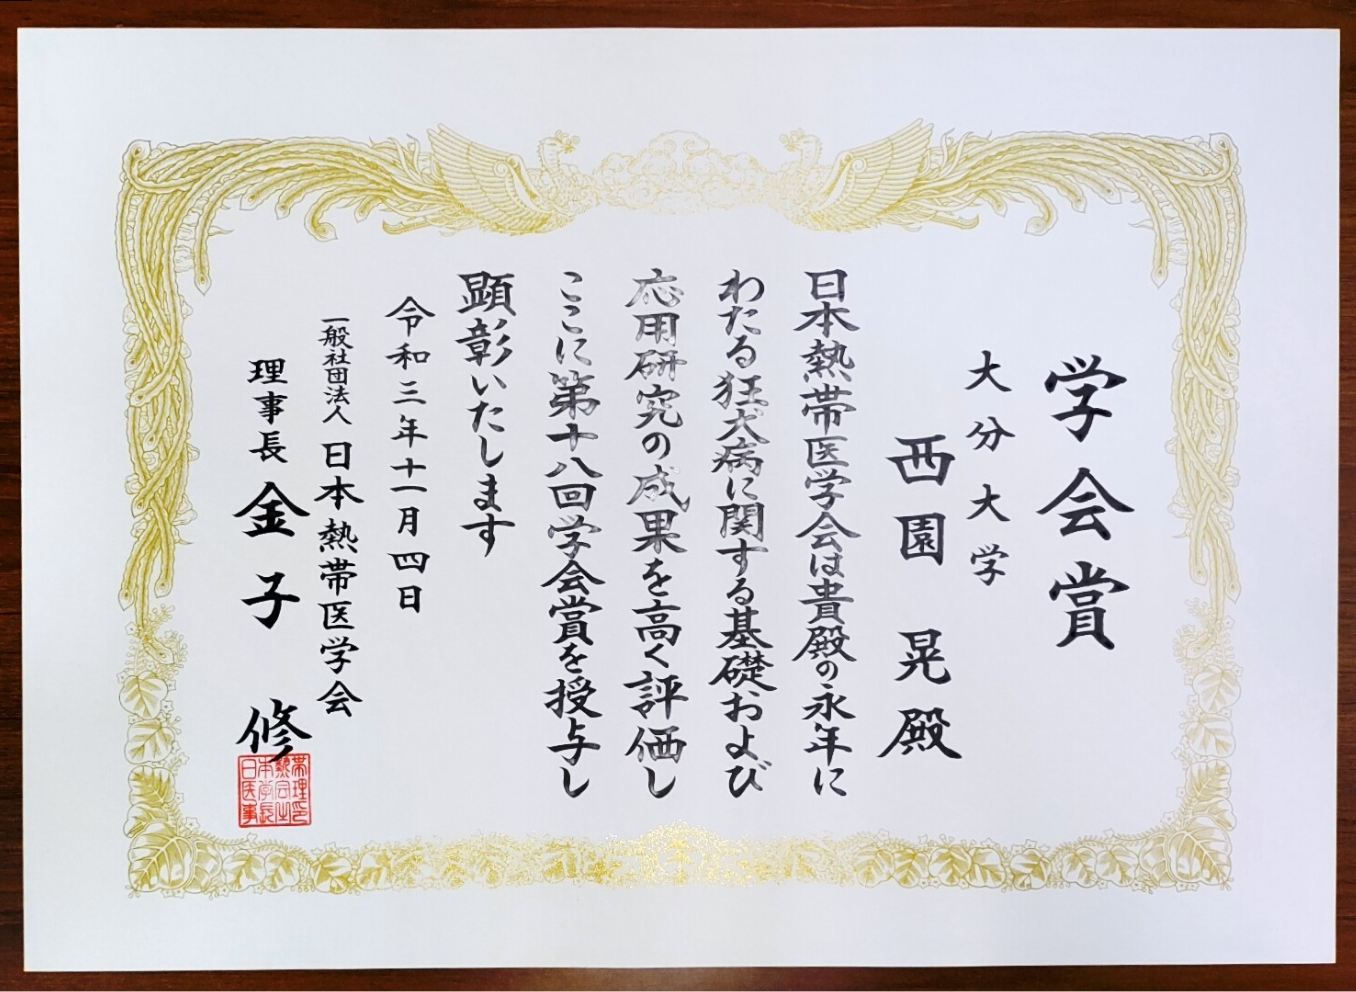 学会賞
大分大学
西園 晃殿
日本熱帯医学会は貴殿の永年に
わたる狂犬病に関する基礎および
応用研究の成果を高く評価し
ここに第十八回学会賞を授与し
顕彰いたします
令和三年十一月四日
一般社団法人 日本熱帯医学会
理事長 金子 修